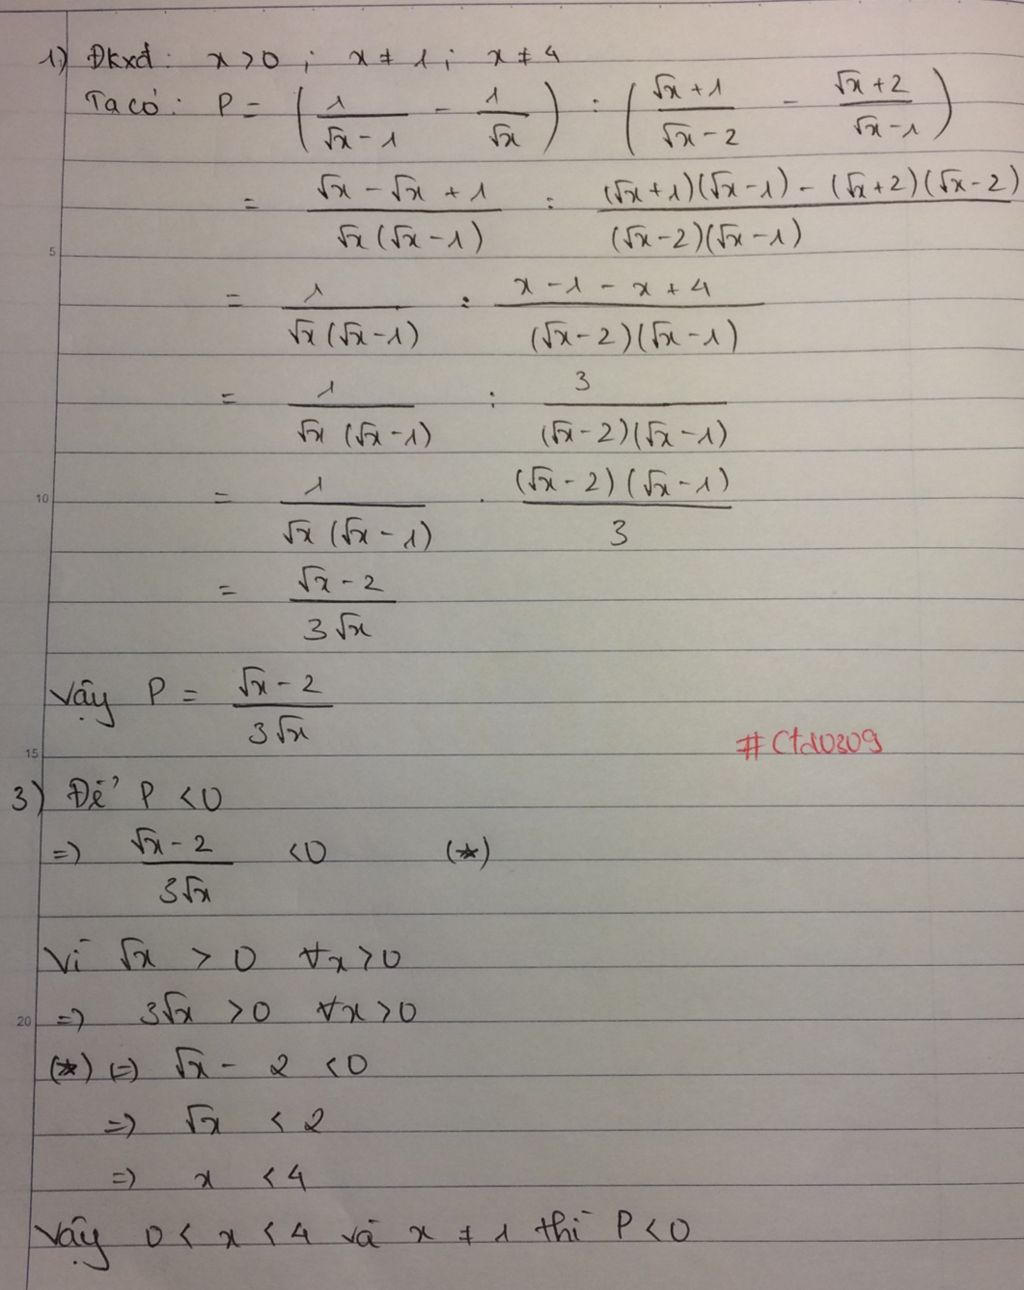 1) Đkxđ: x > 0 ; x ≠ 1 ; x ≠ 4
Ta có: P = (1/(√x - 1) - 1/√x) : ((√x + 1)/(√x - 2) - (√x + 2)/(√x - 1))
= (√x - √x + 1)/(√x(√x - 1)) : ((√x + 1)(√x - 1) - (√x + 2)(√x - 2))/((√x - 2)(√x - 1))
5
= 1/(√x(√x - 1)) : (x - 1 - x + 4)/((√x - 2)(√x - 1))
= 1/(√x(√x - 1)) : 3/((√x - 2)(√x - 1))
10
= 1/(√x(√x - 1)) . ((√x - 2)(√x - 1))/3
= (√x - 2)/(3√x)
Vậy P = (√x - 2)/(3√x)
#Ctd0309
15
3) Để P < 0
=> (√x - 2)/(3√x) < 0 (*)
Vì √x > 0 ∀x > 0
20
=> 3√x > 0 ∀x > 0
(*) (=) √x - 2 < 0
=> √x < 2
=> x < 4
Vậy 0 < x < 4 và x ≠ 1 thì P < 0